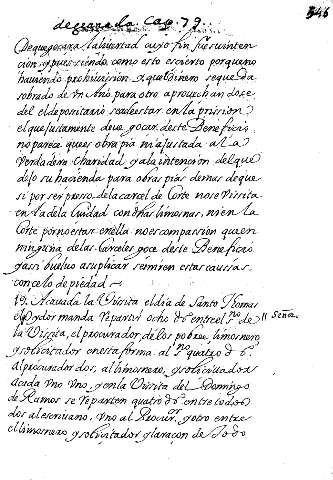 de granada. Cap. 79.
346
De que gozara la livertad cuyo fin fue su inten
cion, y pues siendo como esto es cierto porque no
haviendo prohivision x aquel dinero se queda
sobrado de vn Año para otro aprovechandose
del el depositario se ade estar en la prision
el que justamente deve goçar deste Beneficio
no parece que es obra pia ni ajustada a la
verdadera charidad y a la intencion del que
dejo su hacienda para obras pias demas de que
si por ser presso de la carcel de Corte no se vissita
en la de la Ciudad con dhas limosnas, ni en la
Corte por no estar en ella no es compasion que en
ninguna de las Carceles goce deste Beneficio
y assi buelvo a suplicar se miren estas caussas
con celo de piedad
19. Acavada la Vissita el dia de Santo Thomas
el oydor manda repartir ocho ds entre el sno de
11 Seña.
la Vissita, el procurador de los pobres limosnero
y solicitador en esta forma al sno quatro ds
Al procurador dos, al limosnero, y solicitador a
cada vno vno, y en la Vissita del Domingo
de Ramos se reparten quatro ds entre todos
dos al escrivano, vno al Procuror y otro entre
el limosnero y solicitador y la raçon de todo